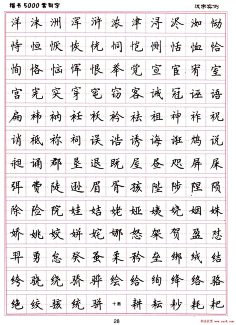 楷书5000常用字
汉字实例
洋 洙 洲 浑 浒 浓 津 浔 浕 洳 恸
恃 恒 恹 恢 恍 恫 恺 恻 恬 恤 恰
恂 恪 恼 恽 恨 举 觉 宣 宦 宥 室
宫 宪 突 穿 窀 窃 客 诫 冠 诬 语
扁 袆 衲 衽 袄 衿 袂 祛 祖 神 祚
诮 祗 祢 祠 误 诰 诱 诲 诳 鸩 说
昶 诵 郡 垦 退 既 屋 昼 咫 屏 屎
弭 费 陡 逊 眉 胥 孩 陛 陟 陧 陨
除 险 院 娃 姞 姥 娅 姨 娆 姻 姝
娇 姚 姣 姘 姹 娜 怒 架 贺 盈 怼
羿 勇 怠 癸 蚤 柔 矜 垒 绑 绒 结
绔 骁 绕 骄 骅 绘 给 绚 绛 络 骆
绝 绞 骇 统 骈 十画 耕 耘 耖 耗 耙
28